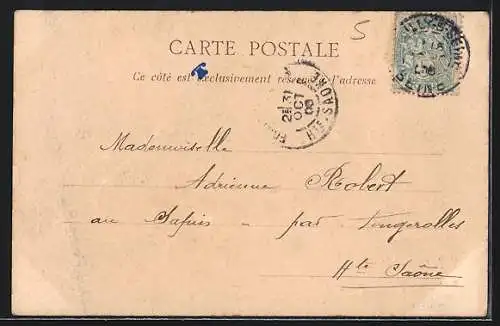 5
CARTE POSTALE
Ce côté est exclusivement réservé à l'adresse
SEINE
HTE SAONE
2E 31
OCT
Mademoiselle
Adrienne Robert
au Sapin - par Fougerolles
Hte Saône